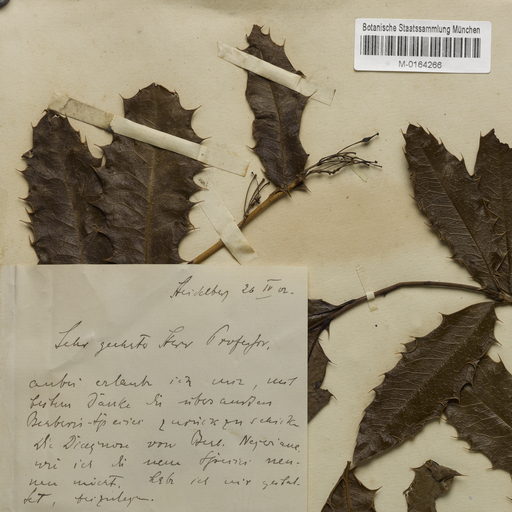 Botanische Staatssammlung München
M-0164266
Heidelberg 26 IV 02.
Sehr geehrter Herr Professor,
anbei erlaube ich mir, mit
Danke die übersandten
Berberis-Species zurückzuschicken
Die Diagnose von Berb.
wie ich die neue Species nen-
nen möcht, habe ich mir gestat-
tet, beizulegen.